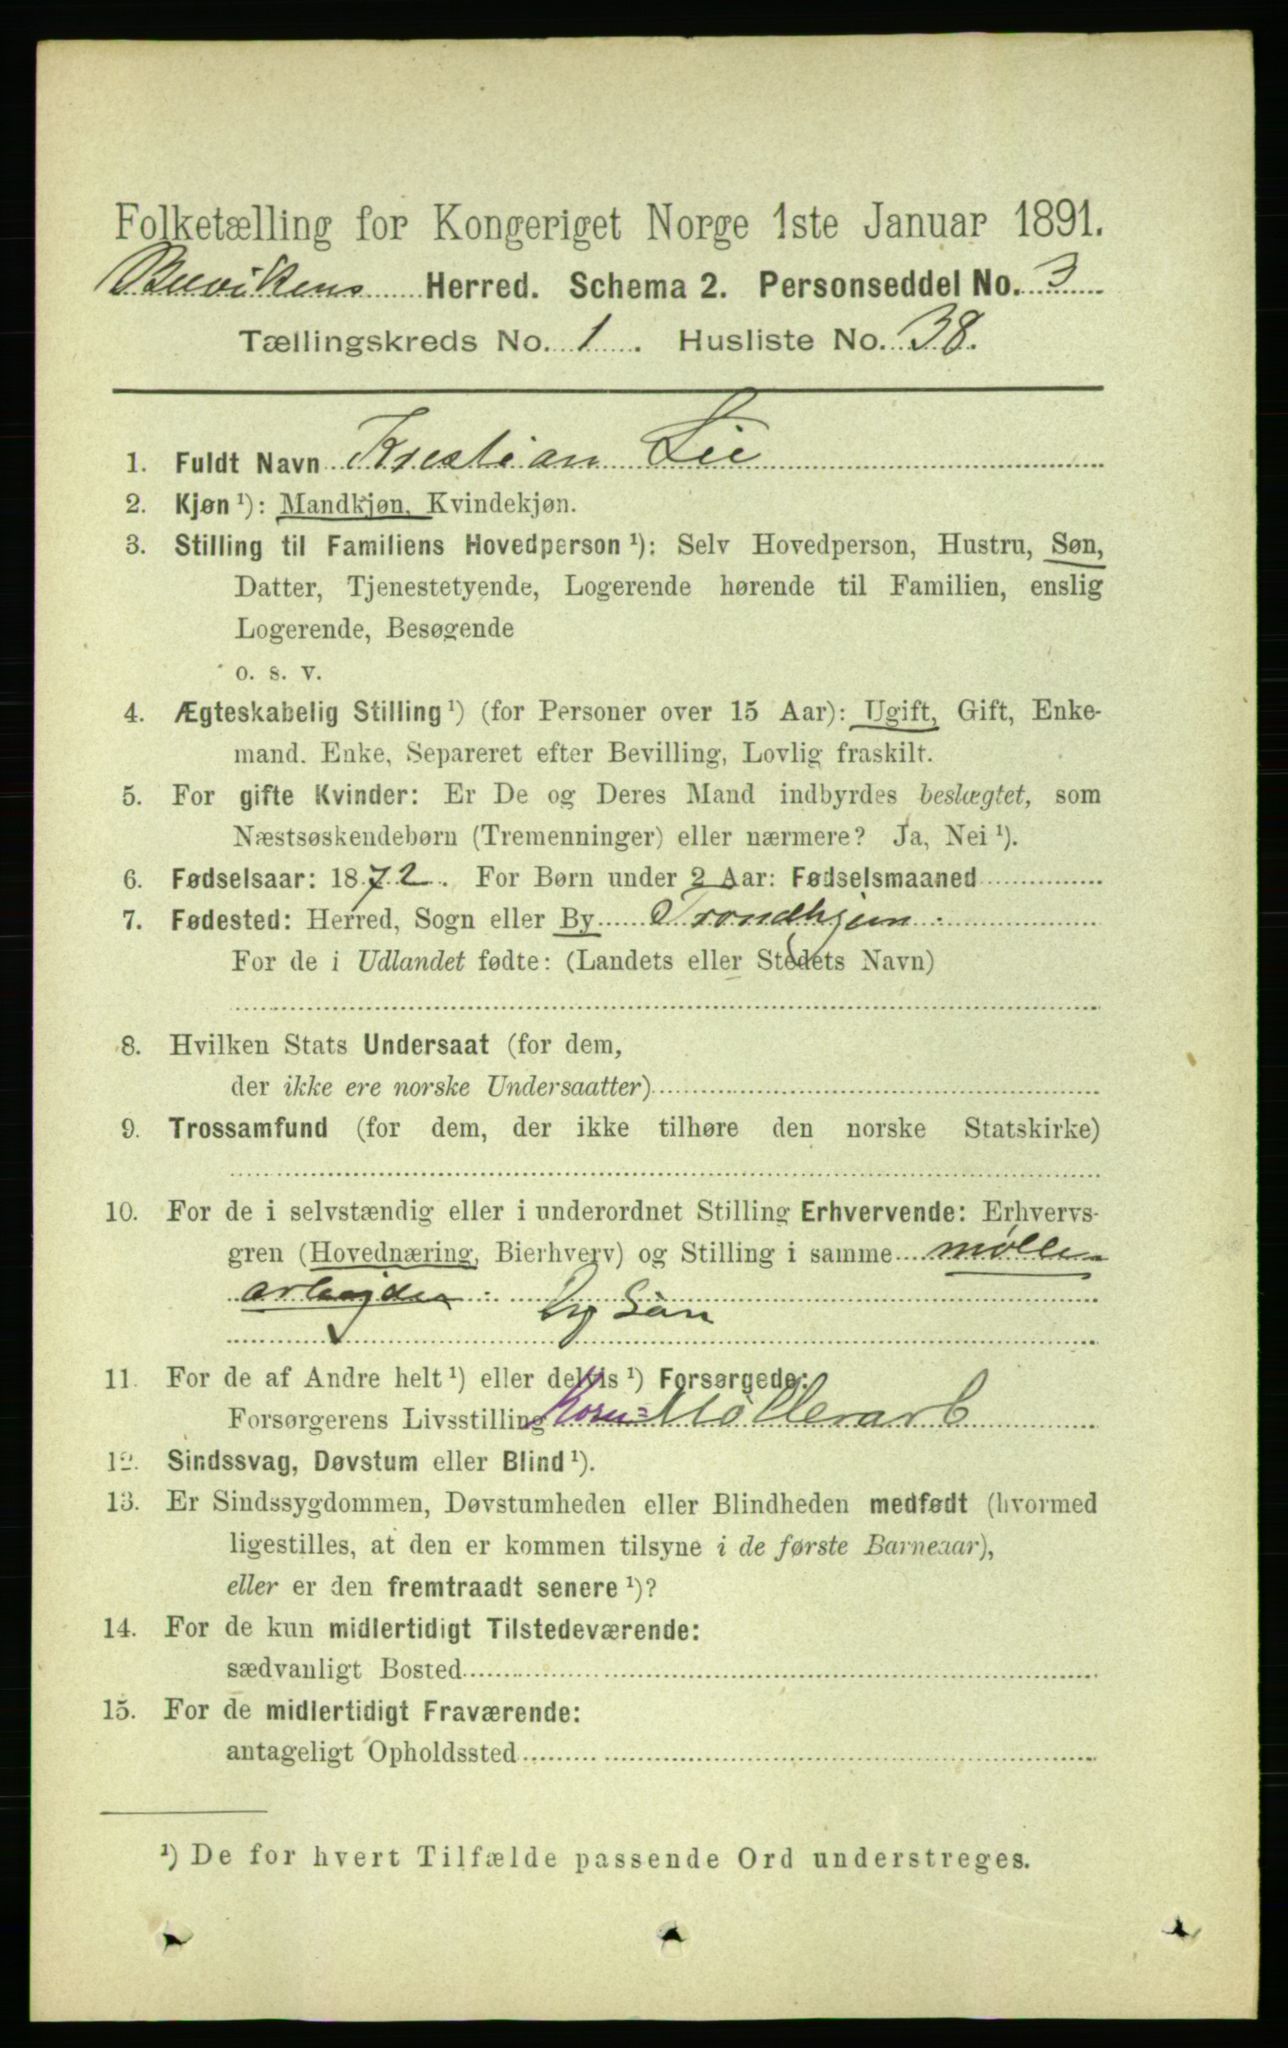 Folketælling for Kongeriget Norge 1ste Januar 1891.
Buvikens Herred. Schema 2. Personseddel No. 3
Tællingskreds No. 1. Husliste No. 38.
1. Fuldt Navn Kristian Lie
2. Kjøn ¹): Mandkjøn, Kvindekjøn.
3. Stilling til Familiens Hovedperson ¹): Selv Hovedperson, Hustru, Søn,
Datter, Tjenestetyende, Logerende hørende til Familien, enslig
Logerende, Besøgende
o. s. v.
4. Ægteskabelig Stilling ¹) (for Personer over 15 Aar): Ugift, Gift, Enke-
mand. Enke, Separeret efter Bevilling, Lovlig fraskilt.
5. For gifte Kvinder: Er De og Deres Mand indbyrdes beslægtet, som
Næstsøskendebørn (Tremenninger) eller nærmere? Ja, Nei ¹).
6. Fødselsaar: 1872. For Børn under 2 Aar: Fødselsmaaned
7. Fødested: Herred, Sogn eller By Trondhjem
For de i Udlandet fødte: (Landets eller Stedets Navn)
8. Hvilken Stats Undersaat (for dem,
der ikke ere norske Undersaatter)
9. Trossamfund (for dem, der ikke tilhøre den norske Statskirke)
10. For de i selvstændig eller i underordnet Stilling Erhvervende: Erhvervs-
gren (Hovednæring, Bierhverv) og Stilling i samme mølle
arbeyder
Søn
11. For de af Andre helt ¹) eller delvis ¹) Forsørgede:
Forsørgerens Livsstilling Korn=Møllerarb
12. Sindssvag, Døvstum eller Blind ¹).
13. Er Sindssygdommen, Døvstumheden eller Blindheden medfødt (hvormed
ligestilles, at den er kommen tilsyne i de første Barneaar),
eller er den fremtraadt senere ¹)?
14. For de kun midlertidigt Tilstedeværende:
sædvanligt Bosted
15. For de midlertidigt Fraværende:
antageligt Opholdssted
¹) De for hvert Tilfælde passende Ord understreges.